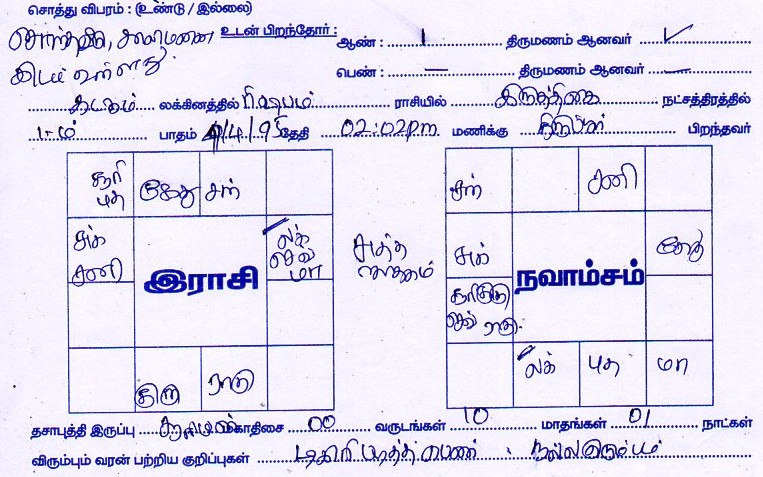 சொத்து விபரம் : (உண்டு / இல்லை)
சொந்தவீடு, காலிமனை உடன் பிறந்தோர் : ஆண் : 1 திருமணம் ஆனவர் ✓
உள்ளது. பெண் : — திருமணம் ஆனவர் —
கடகம் லக்கினத்தில் ரிஷபம் ராசியில் கிருத்திகை நட்சத்திரத்தில்
பாதம் 4/95 தேதி 02:02 P.m. மணிக்கு பிறந்தவர்
சூரி புத கேது சந் சந் சனி
சுக் சனி லக் செவ் மா சுத்த சுக் கேது
இராசி நவாம்சம்
சூரி குரு செவ் ராகு
குரு ராகு லக் புத மா
தசாபுத்தி இருப்பு சூரியன் மகாதிசை 00 வருடங்கள் 10 மாதங்கள் 01 நாட்கள்
விரும்பும் வரன் பற்றிய குறிப்புகள் டிகிரி படித்த பெண் . நல்லகுடும்பம்